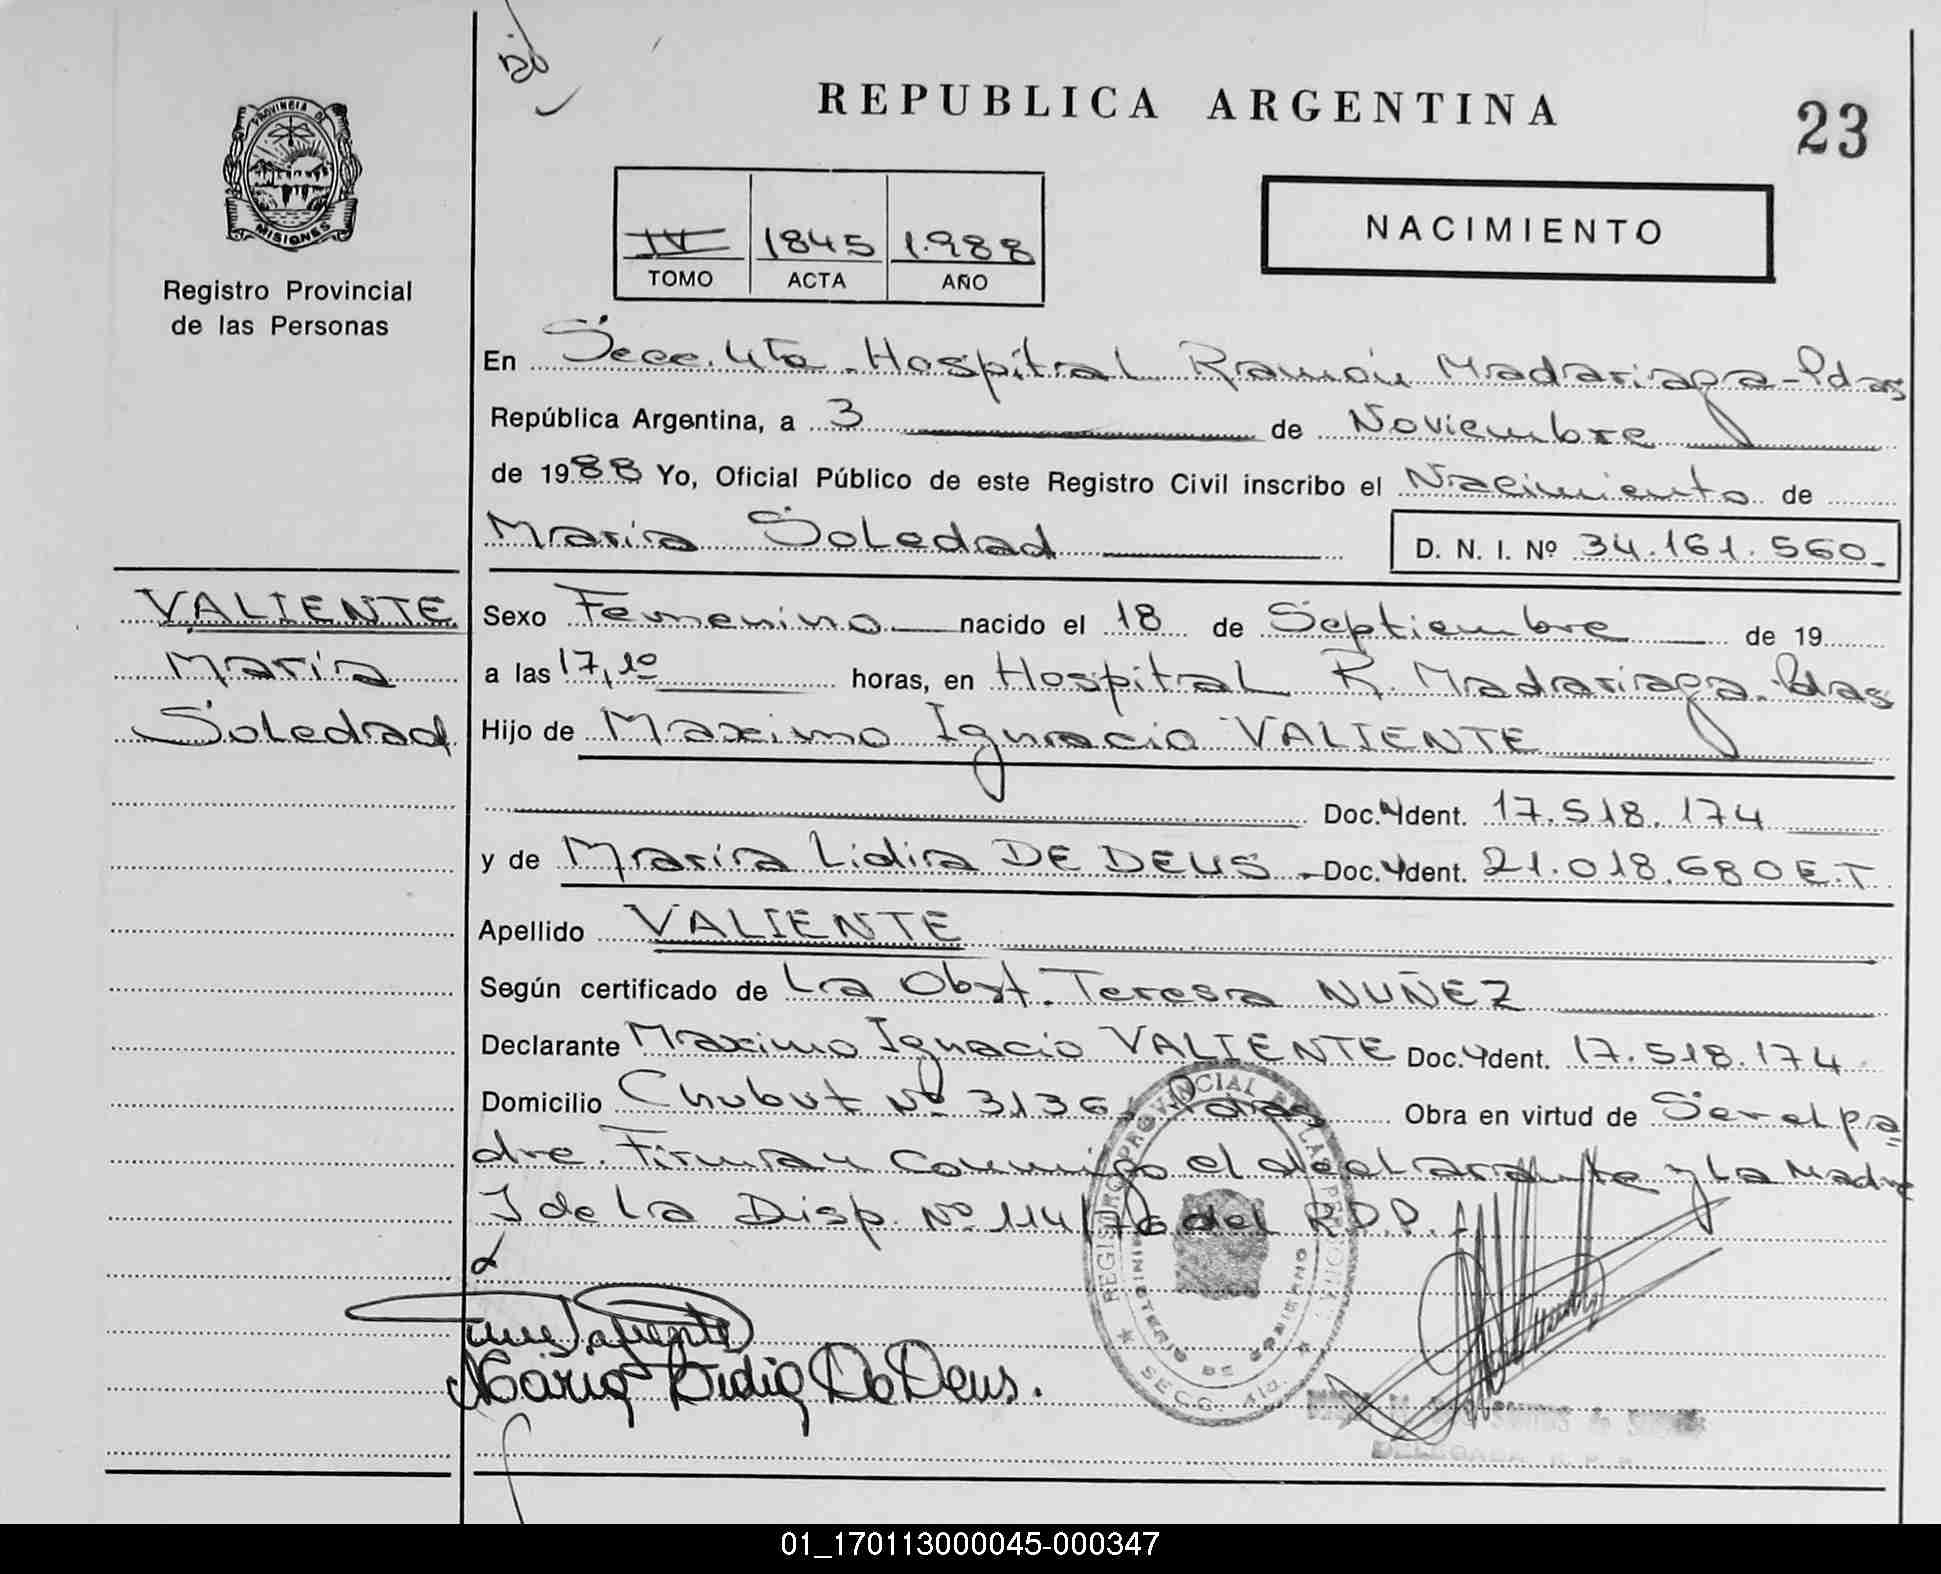 REPUBLICA ARGENTINA
23
PROVINCIA DE
MISIONES
Registro Provincial
de las Personas
IV 1845 1.988
TOMO ACTA AÑO
NACIMIENTO
En Secc. 4ta. Hospital Ramón Madariaga - Pdas
República Argentina, a 3 de Noviembre
de 1988 Yo, Oficial Público de este Registro Civil inscribo el Nacimiento de
Maria Soledad D. N. I. Nº 34.161.560
VALIENTE
María
Soledad
Sexo Femenino nacido el 18 de Septiembre de 19
a las 17,10 horas, en Hospital R. Madariaga. Pdas
Hijo de Maximo Ignacio VALIENTE
Doc. Ydent. 17.518.174
y de María Lidia DE DEUS Doc. Ydent. 21.018.680 E.T
Apellido VALIENTE
Según certificado de La Obst. Teresa NUÑEZ
Declarante Maximo Ignacio VALIENTE Doc. Ydent. 17.518.174
Domicilio Chubut Nº 3136, Pdas Obra en virtud de Ser el pa=
dre. Firman conmigo el declarante y La Madre
I de la Disp. Nº 114/76 del R.P.P.
REGISTRO PROVINCIAL DE LAS PERSONAS
MINISTERIO DE GOBIERNO
SECC. 4ta.
Maria Lidia De Deus.
DELEGADA R. P. P.
01_170113000045-000347